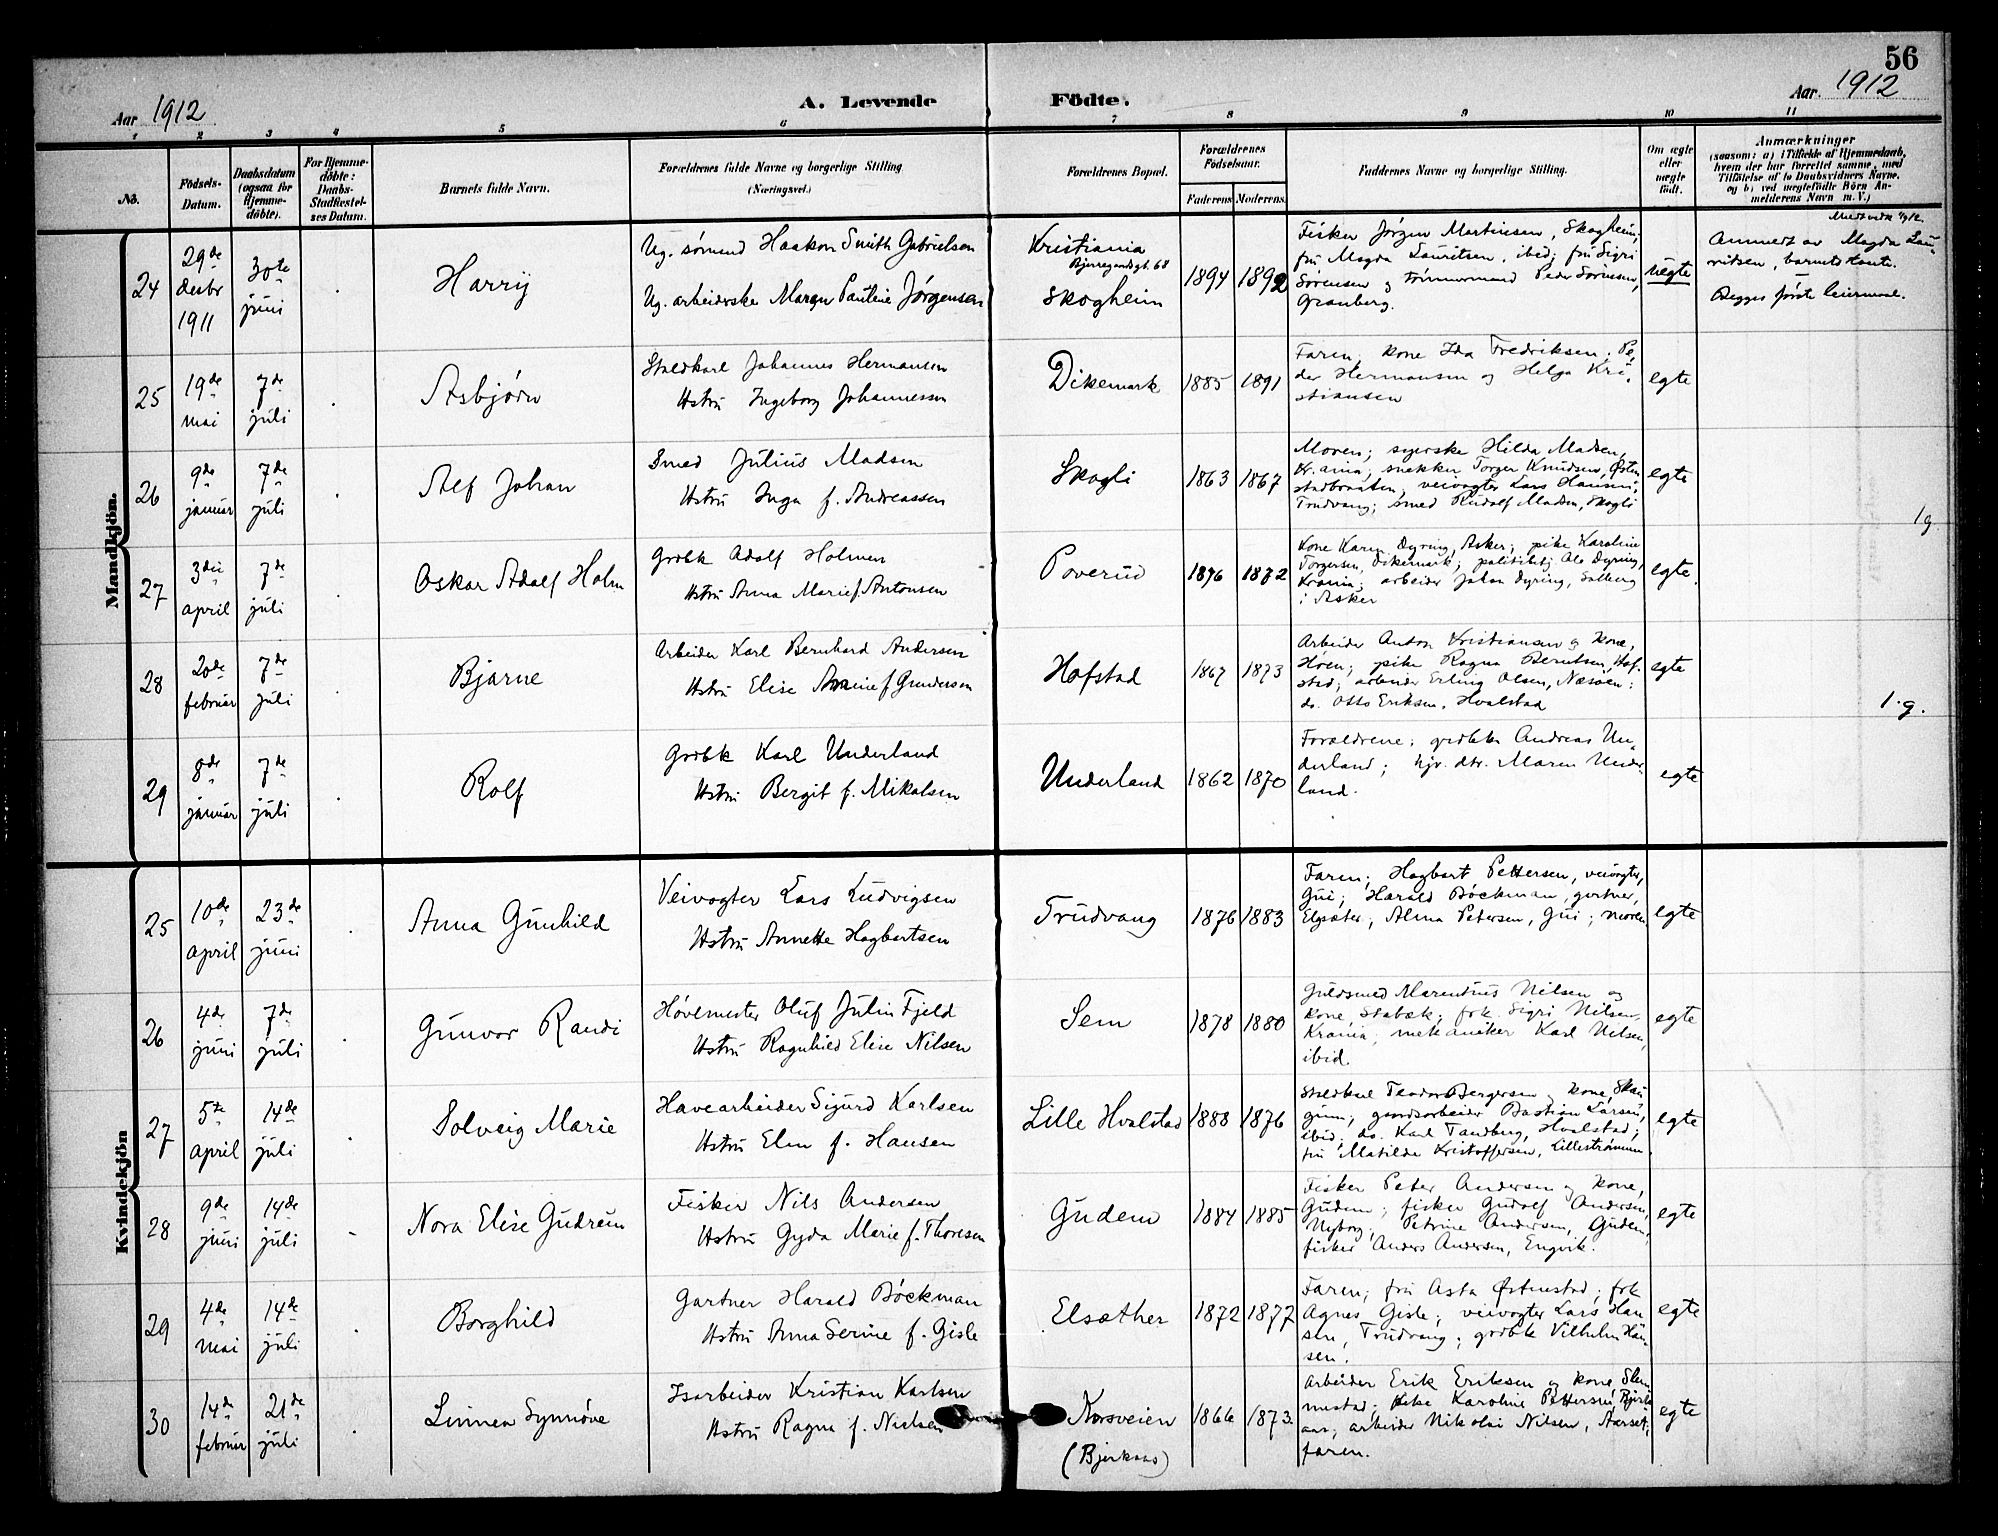 56
Aar 1912
A. Levende
Födte.
Aar. 1912
1 2 3 4 5 6 7 8 9 10 11
No.
Födsels-
Datum.
Daabsdatum
(ogsaa for
Hjemme-
döbte).
For Hjemme-
döbte:
Daabs-
Stadfæstel-
ses Datum.
Barnets fulde Navn.
Forældrenes fulde Navne og borgerlige Stilling
(Næringsvei.)
Forældrenes Bopæl.
Forældrenes
Födselsaar.
Faderens Moderens
Faddernes Navne og borgerlige Stilling.
Om ægte
eller
uægte
født.
Anmærkninger
(saasom: a) i Tilfælde af Hjemmedaab,
hvem der har forrettet samme, med
Tilföielse af to Daabsvidners Navne,
og b) ved uægtefödte Börn An-
melderens Navn m. V.)
Mandkjön.
24
29de
desbr
1911
30te
juni
Harry
Ug. sømand Haakon Smith Gabrielsen
Ug. arbeiderske Margn Pauline Jørgensen
Kristiania
Bjerregaardsgt. 68
Skogheim
1894 1892
Fisker Jørgen Martinsen, Skogheim,
fru Magda Lauritsen, ibid; fru Sigri
Sørensen og tømmermand Peder Sørensen,
Granberg.
uegte
Anmeldt av Magda Lau-
ritsen, barnets tante.
Begges første leiermaal.
25
19de
mai
7de
juli
Asbjørn
Staldkarl Johannes Hermansen
Hstru Ingeborg Johannessen
Dikemark
1885 1891
Faren; kone Ida Fredriksen; Pe-
der Hermansen og Helga Kri-
stiansen
egte
26
9de
januar
7de
juli
Alf Johan
Smed Julius Madsen
Hstru Inga f. Andreassen
Skogli
1863 1867
Moren; syerske Hilda Madsen,
Kr.ania; snekker Torger Knudsen, Østen-
stadbraaten; veivogter Lars Hansen,
Trudvang; smed Rudolf Madsen, Skogli
egte
1 g.
27
3die
april
7de
juli
Oskar Adolf Holm
Grdbk Adolf Holmen
Hstru Anna Marie f. Antonsen
Poverud
1876 1872
Kone Karen Dyring, Asker; pike Karoline
Torgersen, Dikemark; politibtj. Ole Dyring,
Krania; arbeider Johan Dyring, Solberg
i Asker
egte.
28
20de
februar
7de
juli
Bjarne
Arbeider Karl Bernhard Andersen
Hstru Elise Amine f. Gundersen
Hofstad
1867 1873
Arbeider Anton Kristiansen og kone,
Høen; pike Ragna Berntsen, Hof-
stad; arbeider Erling Olsen, Næsøen;
do. Otto Eriksen, Hvalstad
egte
1. g.
29
8de
januar
7de
juli
Rolf
Grdbk Karl Underland
Hstru Bergit f. Mikalsen
Underland
1862 1870
Forældrene; grdbkr Andreas Un-
derland; hjv. dtr. Maren Under-
land.
egte
Kvindekjön
25
10de
april
23de
juni
Anna Gunhild
Veivogter Lars Ludvigsen
Hstru Annette Hagbartsen
Trudvang
1876 1883
Faren; Hagbart Pettersen, veivogter,
Gui; Harald Bøckman, gartner,
Elsæter; Alma Petersen, Gui; moren
egte
26
4de
juni
7de
juli
Gunvor Randi
Høvlemester Oluf Julin Fjeld
Hstru Ragnhild Elise Nilsen
Sem
1878 1880
Guldsmed Marentius Nilsen og
kone, Stabæk; frk. Sigri Nilsen,
Krania; mekaniker Karl Nilsen,
ibid.
egte
27
5te
april
14de
juli
Solveig Marie
Havearbeider Sigurd Karlsen
Hstru Elen f. Hansen
Lille Hvalstad
1888 1876
Staldkarl Teodor Bergersen og kone, Skau-
gum; gaardsarbeider Bastian Larsen,
ibid; do. Karl Tandberg, Hvalstad;
fru Matilde Kristoffersen, Lillestrømmen.
egte
28
9de
juni
14de
juli
Nora Elise Gudrun
Fisker Nils Andersen
Hstru Gyda Marie f. Thoresen
Gudem
1884 1885
Fisker Peter Andersen og kone,
Gudem; fisker Gudolf Andersen,
Nyborg; Petrine Andersen, Gudem,
fisker Anders Andersen, Engvik.
egte
29
4de
mai
14de
juli
Borghild
Gartner Harald Bøckman
Hstru Anna Serine f. Gisle
Elsæther
1872 1877
Faren; fru Asta Østenstad; frk
Agnes Gisle; veivogter Lars Han-
sen, Trudvang; grdbk Vilhelm Han-
sen.
egte
30
14de
februar
21de
juli
Linnea Synnøve
Isarbeider Kristian Karlsen
Hstru Ragna f. Nielsen
Korsveien
(Bjerkaas)
1866 1873.
Arbeider Erik Eriksen og kone, Slem-
mestad; pike Karoline Pettersen, Bjerk-
aas; arbeider Nikolai Nilsen, Aarset;
faren.
egte